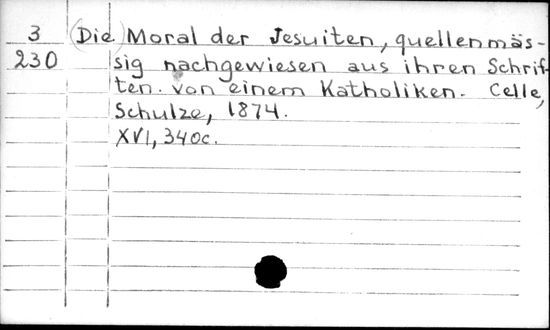 3 (Die) Moral der Jesuiten, quellenmäs-
230 sig nachgewiesen aus ihren Schrif-
ten. von einem Katholiken. Celle,
Schulze, 1874.
XVI, 340c.